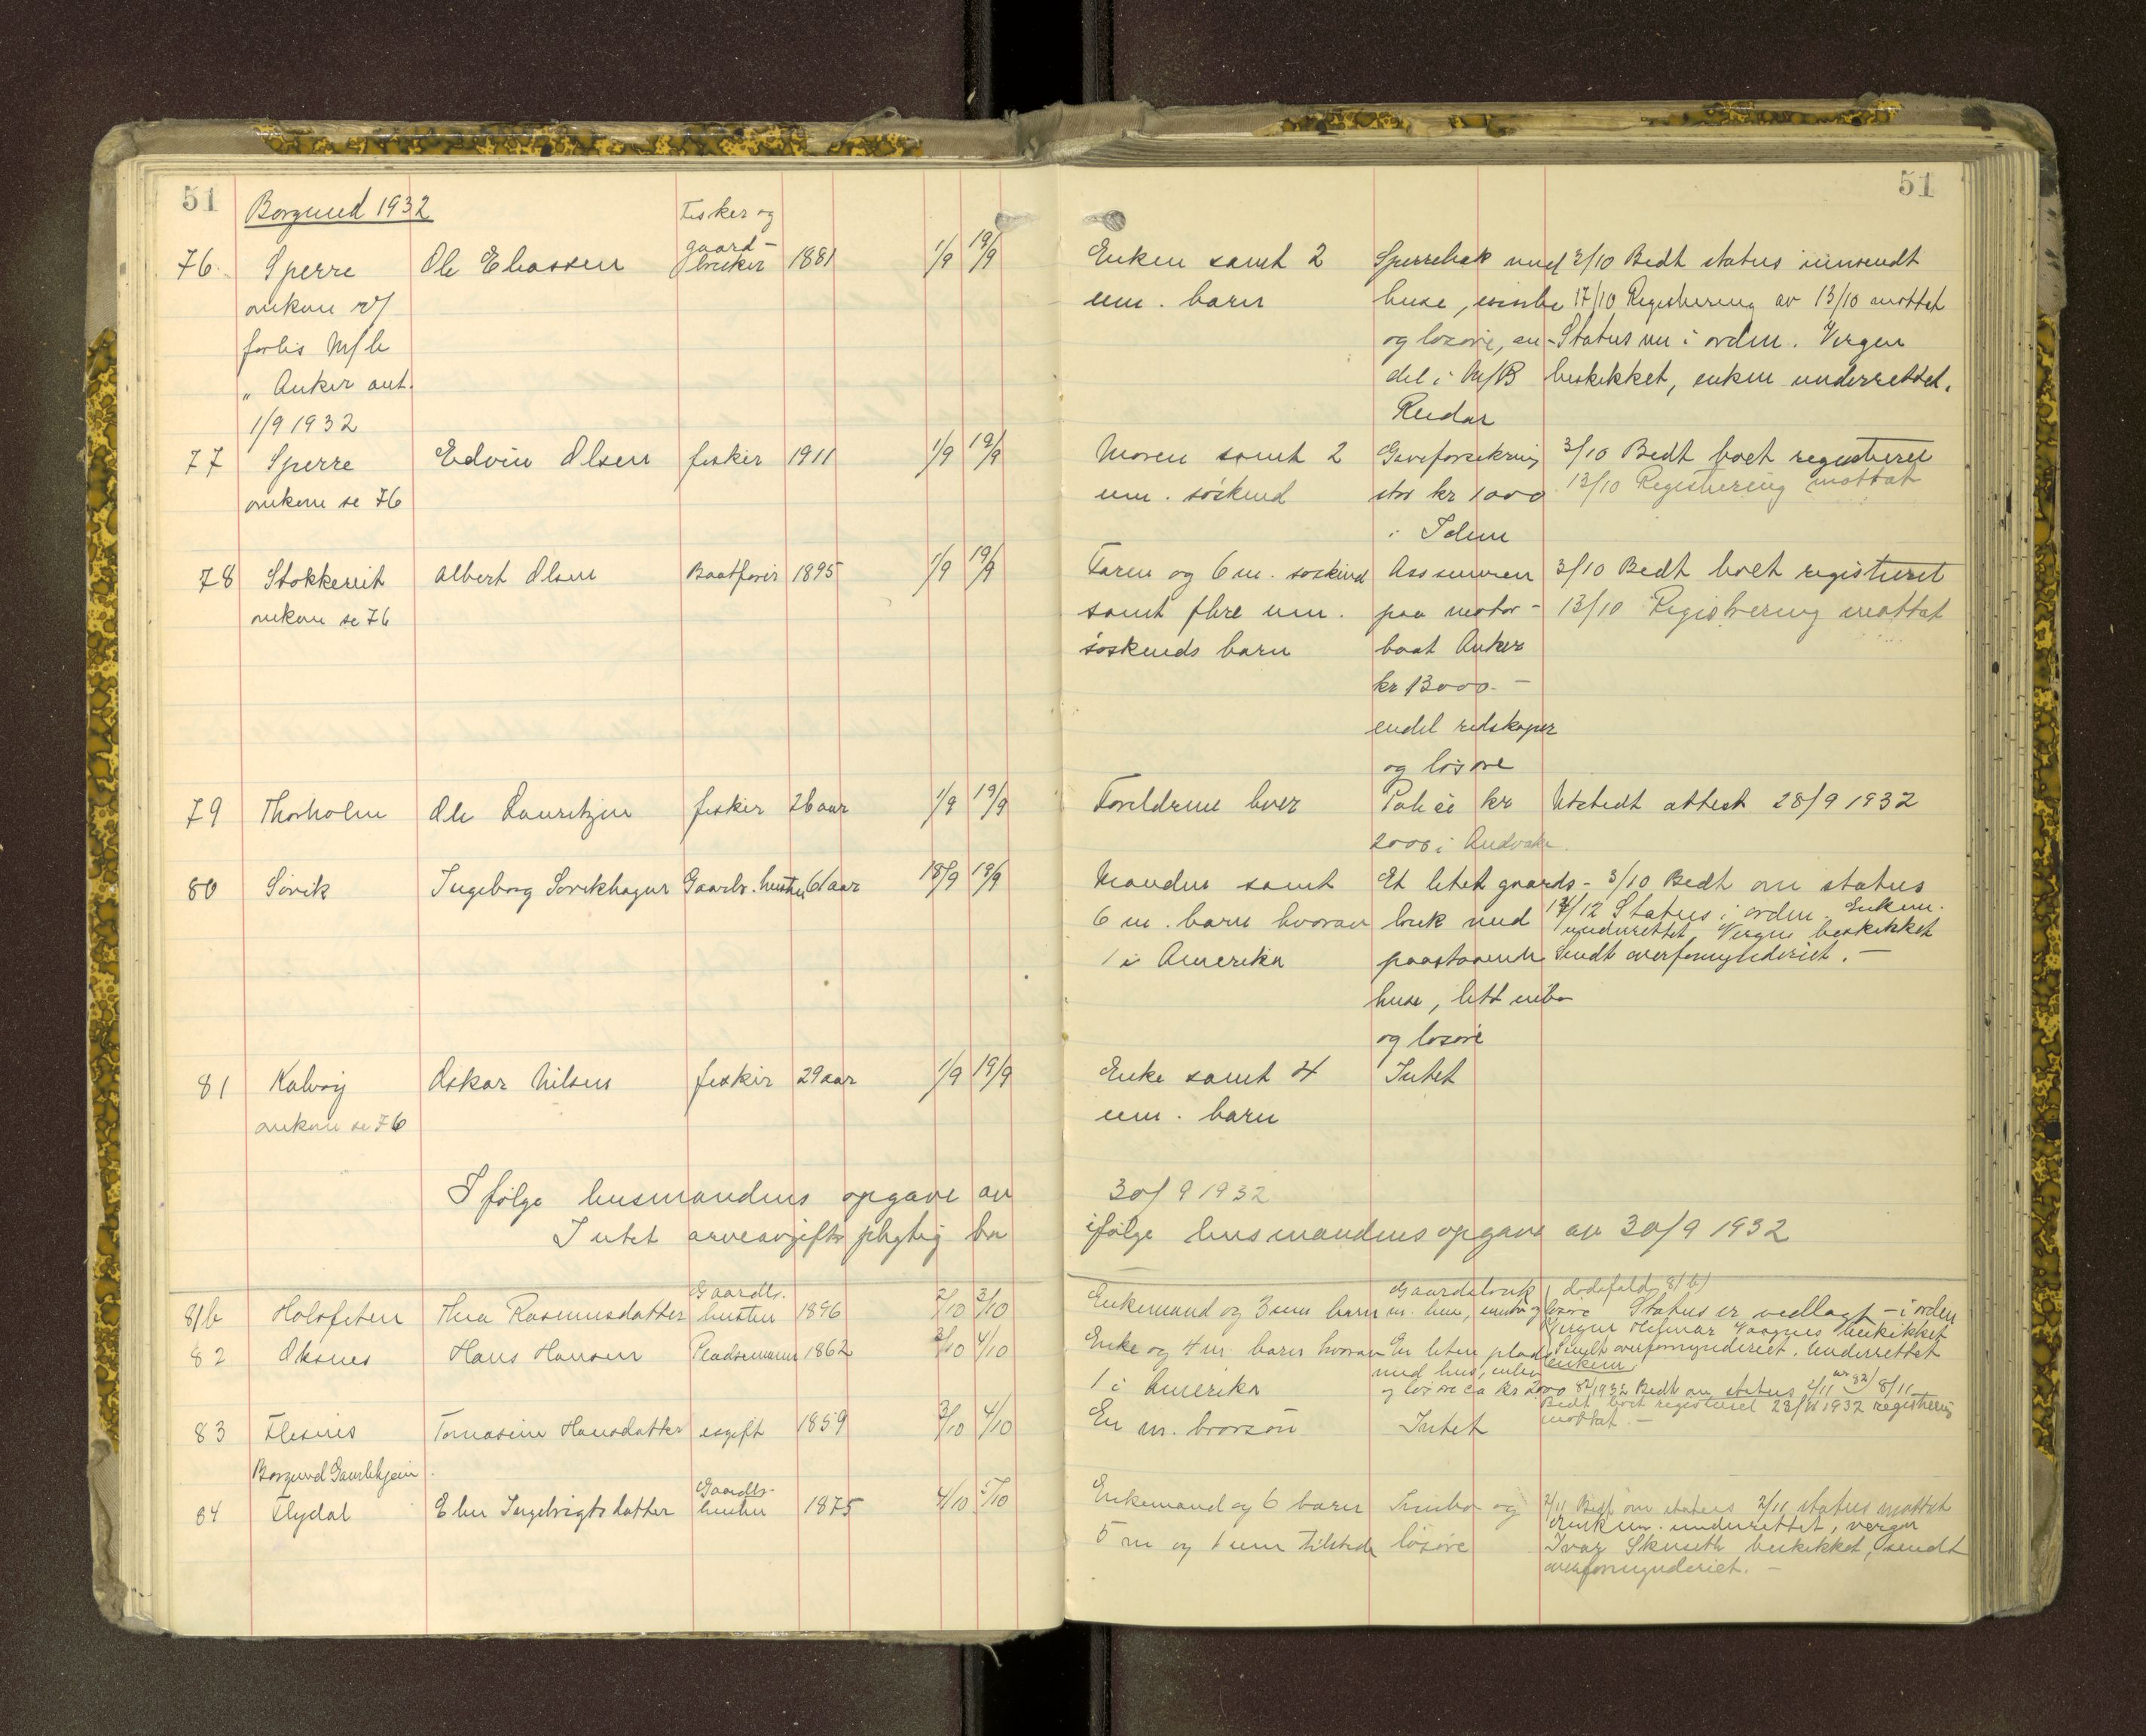 51
51
Borgund 1932
76. Sperre Ole Eliassen Fisker og gaardbruker 1881 1/9 19/9 Enken samt 2 Sperrebak med 3/10 Bedt status innsendt
omkom v/ um. barn huse, innbo 17/10 Registrering av 13/10 mottat
forlis M/b og løsøre, en Status nu i orden. Vergen
„ Anker ant. del i M/B beskikket, enken underrettet.
1/9 1932 Reidar
77 Sperre Edvin Olsen fisker 1911 1/9 19/9 Moren samt 2 Gaveforsikring 3/10 Bedt boet registreret
omkom se 76 um. søskend stor kr 1000 13/10 Registrering mottat
i Idun
78 Albert Olsen Baatfører 1895 1/9 19/9 Faren og 6 m. søskend Assuransen 3/10 Bedt boet registreret
omkom se 76 samt flere um. paa motor- 13/10 Registrering mottat
søskends barn baat Anker
kr 13000.-
endel redskaper
og løsøre
79 Thorholm Ole Lauritzen fisker 26 aar 1/9 19/9 Foreldrene lever Police kr Utstedt attest 28/9 1932
2000 i Andvake.
80 Søvik Ingeborg Sørikhagen Gaardb. hustru 61 aar 18/9 19/9 Manden samt Et litet gaards- 3/10 Bedt om status
6 m. barn hvorav bruk med 17/12 Status i orden. Enkem.
underrettet. Verge beskikket
1 i Amerika paastaaende Sendt overformynderiet. -
huse, litt inbo
og løsøre
81 Kalvøy Oskar Nilsen fisker 29 aar 1/9 19/9 Enke samt 4 Intet
omkom se 76 um. barn
Ifølge lensmandens opgave av 30/9 1932
Intet arveavgiftspligtig bo ifølge lensmandens opgave av 30/9 1932
81b Thea Rasmusdatter Gaardb. hustru 1896 2/10 3/10 Enkemand og 3 um barn Gaardsbruk m. hus, innbo og løsøre (dødsfald 81b) Status er vedlagt - i orden
Verge Hilmar beskikket
82 Oksnes Hans Hansen Pladsemann 1862 3/10 4/10 Enke og 4 m. barn hvorav En liten plads Sendt overformynderiet. Underrettet
enkem.
1 i Amerika med hus, inbo og løsøre ca kr 2000 1932 Bedt om status 2/11 8/11
Bedt boet registreret 23/11 1932 registrering
83 Flesnes Tomasine Hansdatter ugift 1859 3/10 4/10 En m. brorsøn Intet mottat. -
Borgund Gamlehjem
84 Flydal Elen Ingebrigtsdatter Gaardb. hustru 1875 4/10 5/10 Enkemand og 6 barn Innbo og 2/11 Bedt om status 2/11 status mottat
Enkem. underrettet, verge
5 m og 1 um tilstede løsøre Ivar beskikket, sendt
overformynderiet. -